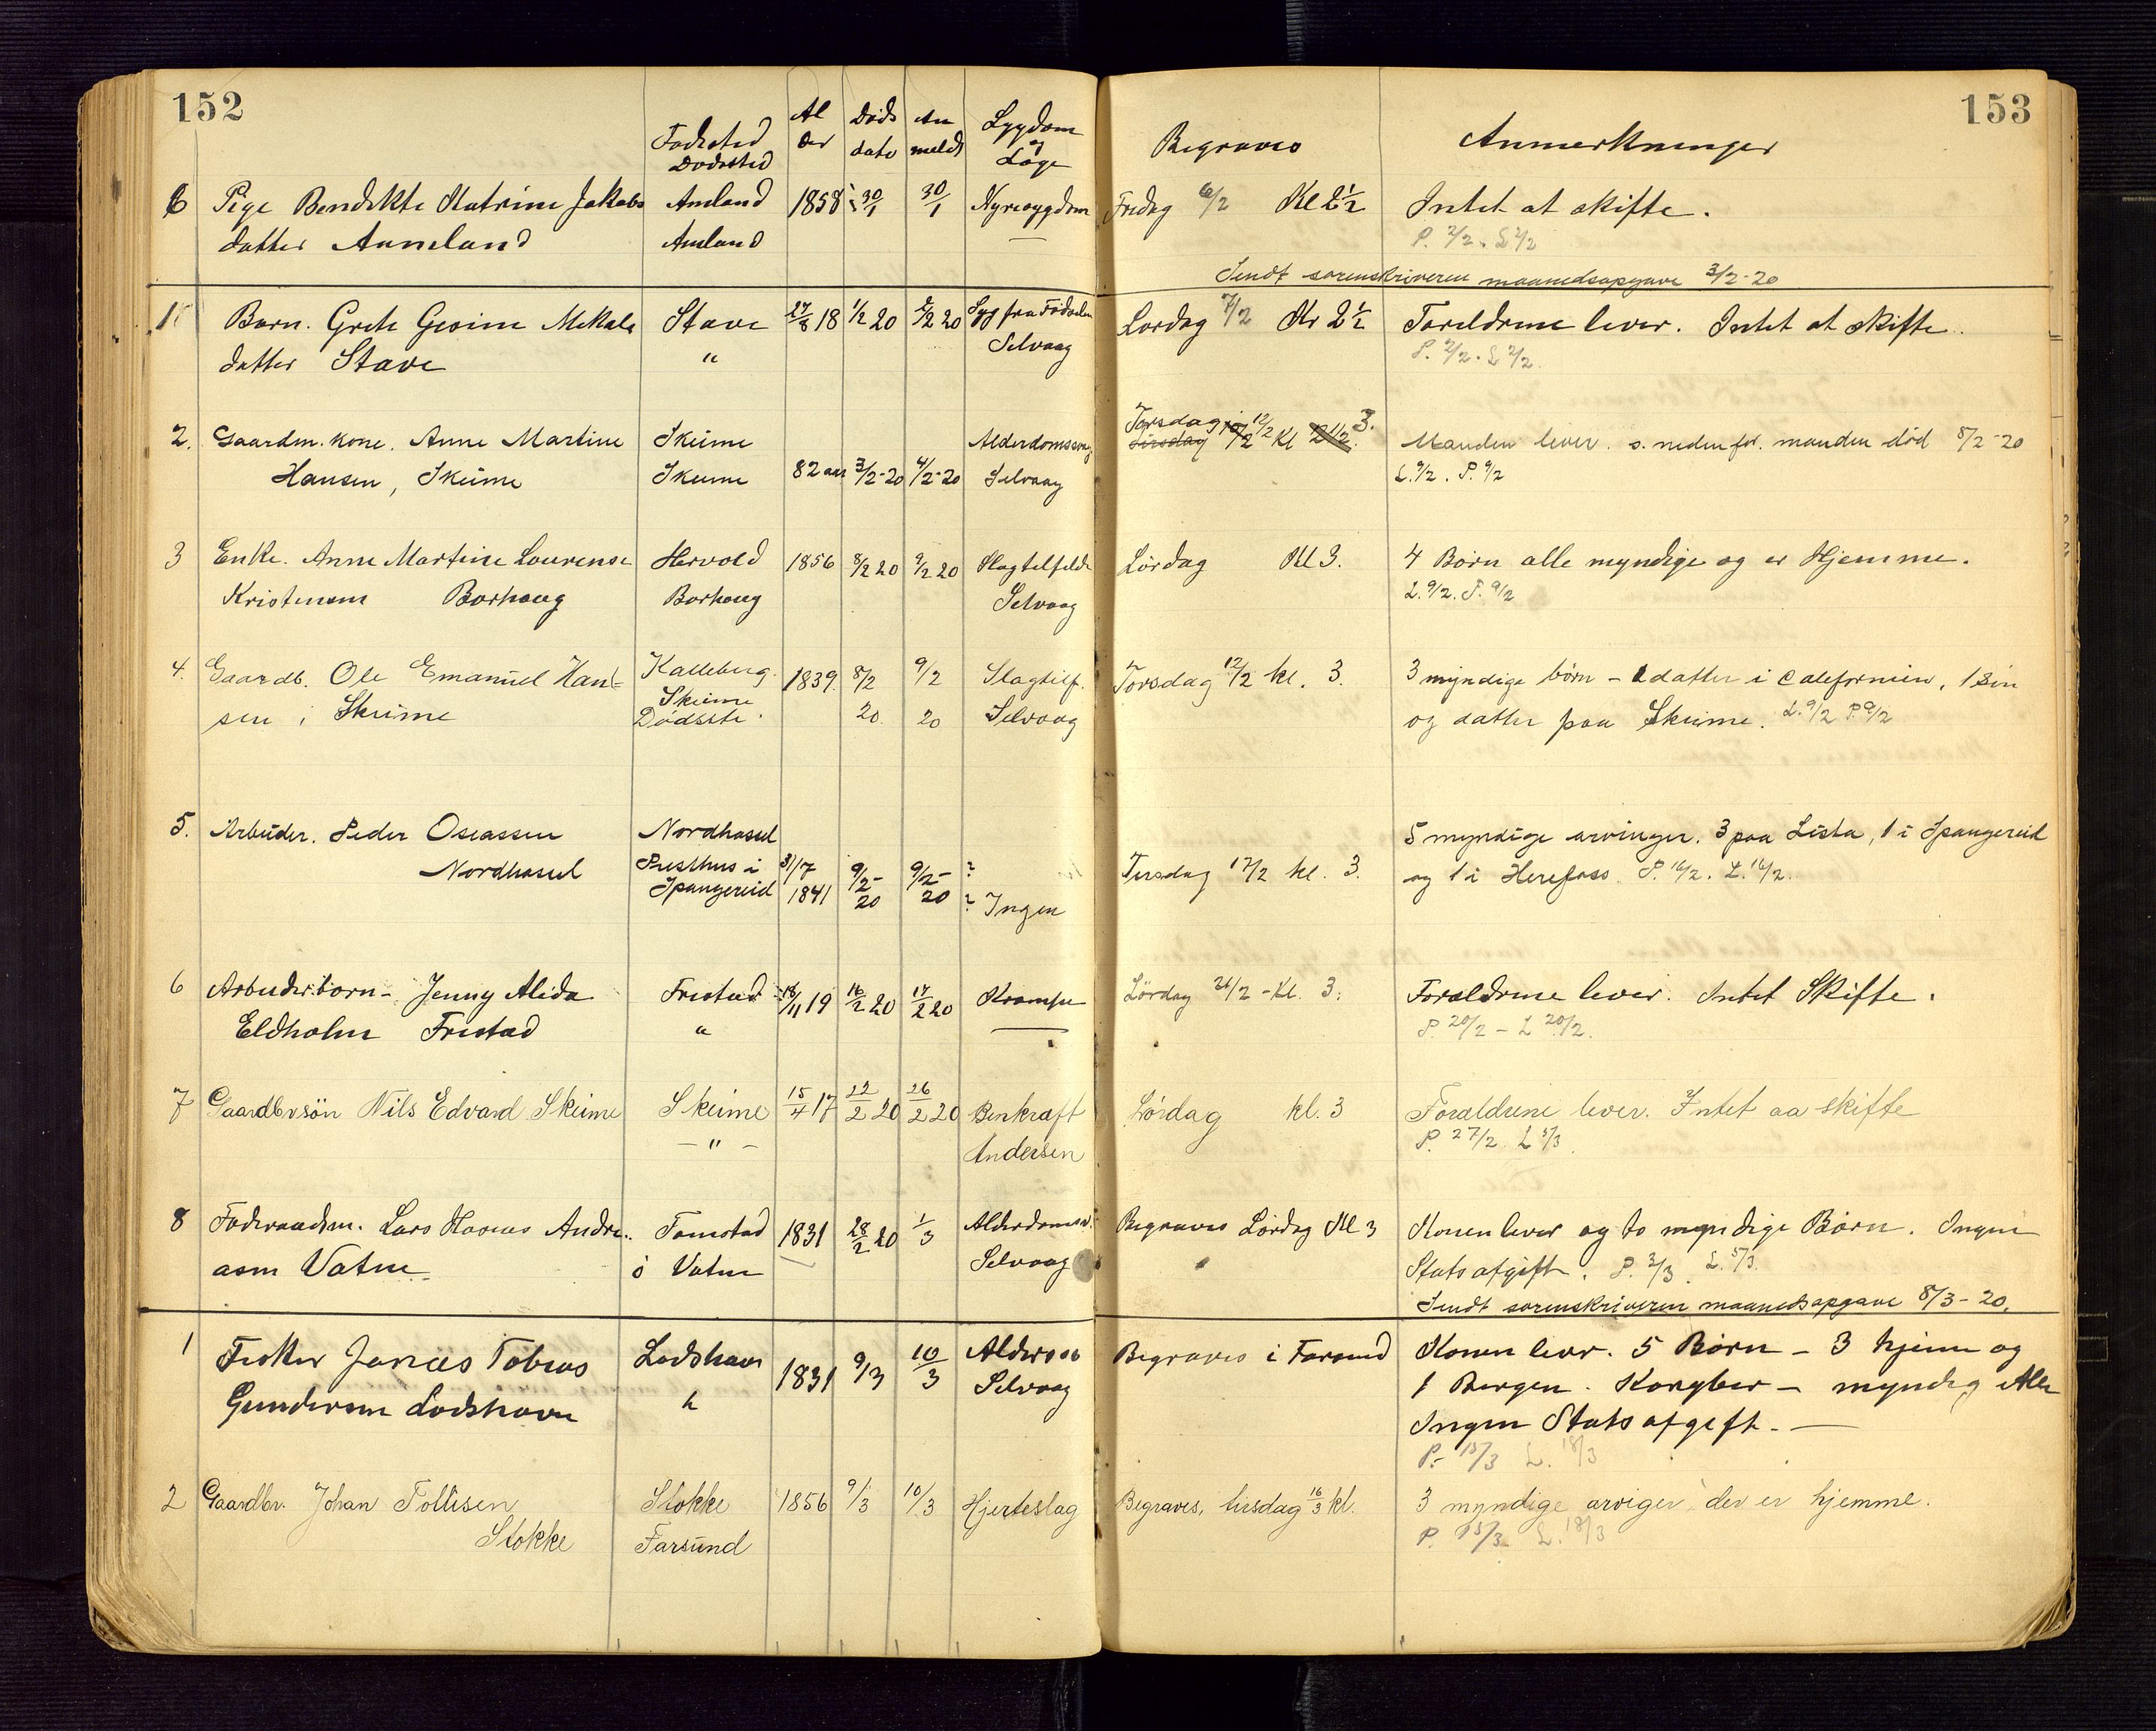 152
153
Fødested Dødssted
Al der
Døds dato
An meldt
Sygdom og Læge
Begraves
Anmerkninger
6 Pige Bendikte Katrine Jakobs Amland 1858 30/1 30/1 Nyresygdom Fredag 6/2 Kl 2½ Intet at skifte.
datter Anneland Amland P. 2/2. L 2/2
Sendt sorenskriveren maanedsopgave 3/2-20
1 Barn. Grete Gesine Mekals Stave 27/8 18 1/2 20 2/2 20 Syg fra Fødselen Lørdag 7/2 Kl 2½ Foreldrene lever. Intet at skifte.
datter Stave " Selvaag P. 2/2. L 2/2.
Torsdag 12/2 3.
2. Gaardm. kone. Anne Martine Skeime Alderdomssvag Tirsdag 10/2 Kl 2 1/2. Manden lever. s. nedenfor. manden død 8/2-20
Hansen, Skeime Skeime 82 aar 3/2-20 4/2-20 Selvaag L. 9/2. P. 9/2
3 Enke. Anne Martine Lourense Hervold 1856 8/2 20 9/2 20 Slagtilfelde Lørdag Kl 3. 4 Børn alle myndige og er Hjemme.
Kristensen Borhaug Borhaug Selvaag L. 9/2. P. 9/2
4. Gaardb. Ole Emanuel Han= Kalleberg. 1839. 8/2 9/2 Slagtilf. Torsdag 12/2 kl. 3. 3 myndige børn - 1 datter i Caleformien, 1 søn
sen i Skeime Skeime Dødsste. 20 20 Selvaag og datter paa Skeime. L. 9/2 P. 9/2
5. Arbeider. Peder Oseassen Nordhasel 5 myndige arvinger. 3 paa Lista, 1 i Spangereid
Nordhasel Presthus i Spangereid 31/7 1841 9/2-20 9/2-20 ? ? Ingen Tirsdag 17/2 kl. 3. og 1 i Herefoss. P. 16/2. L. 16/2.
6 Arbeiderbarn - Jenny Alida Frestad 18/11 19 16/2 20 17/2 20 Krampe Lördag 21/2 - Kl. 3. Foreldrene lever. Intet Skifte.
Eldholm Frestad " P. 20/2 - L 20/2.
7 Gaardbrsön Nils Edvard Skeime Skeime 15/4 17 22/2 20 26/2 20 Benkraft Lördag kl. 3 Foreldrene lever. Intet aa skifte
- " - Andersen P. 27/2 L 5/3.
8 Føderaadsm. Lars Haseas Andre- Tomstad 1831 28/2 20 1/3 Alderdomssv. Begraves Lördag Kl 3 Konen lever og to myndige Børn. Ingen
asen Vatne ö Vatne Selvaag Statsafgift. P. 2/3. L. 5/3.
Sendt sorenskriveren maanedsopgave 8/3-20.
1 Fisker Jonas Tobias Lodshavn 1831 9/3 10/3 Begraves i Farsund Konen lever. 5 Børn - 3 hjeme og
Gundersen Lodshavn " Selvaag 1 Bergen. myndig Alle
Ingen Statsafgift. -
P. 15/3 L. 18/3
2 Gaardbr. Johan Tollisen Stokke 1856 9/3 10/3 Hjerteslag Begraves, tirsdag 16/3 kl. 3 myndige arviger der er hjemme.
Stokke Farsund P. 15/3 L. 18/3